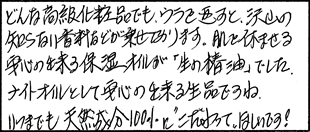 どんな高級化粧品でも、ウラを返すと、沢山の
知らない香料などが乗せてあります。肌を休ませる
安心の出来る保湿オイルが「生の精油」でした。
ナイトオイルとして安心の出来る生品ですね。
いつまでも天然成分100%に"こだわって、ほしいです!